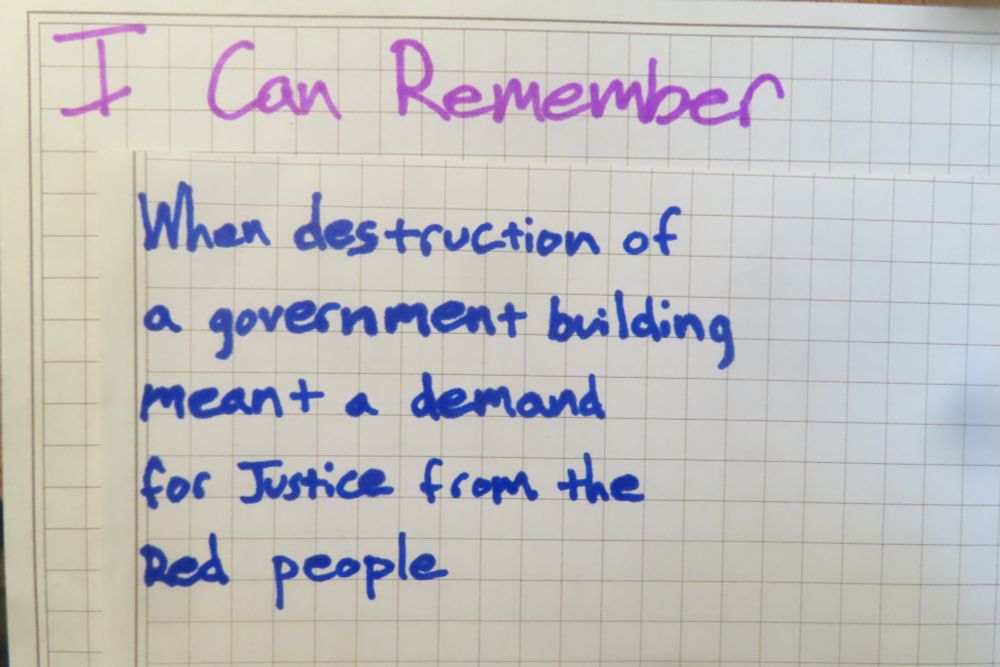 I Can Remember
When destruction of
a government building
meant a demand
for Justice from the
Red people